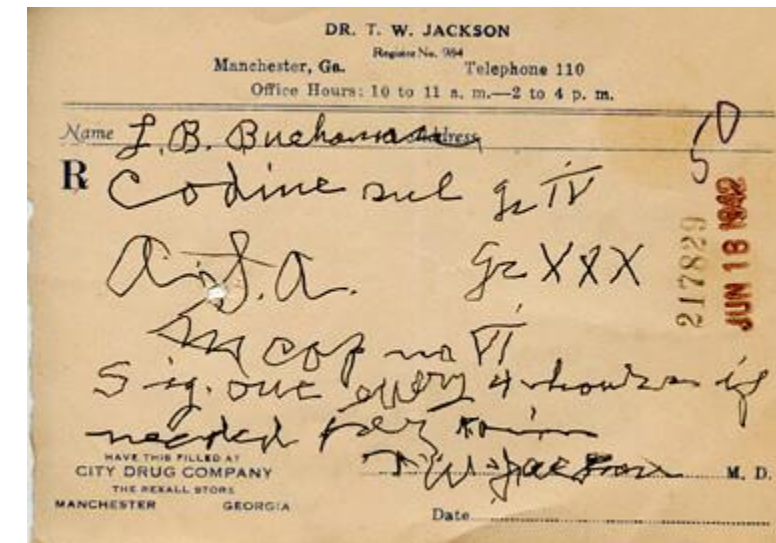 DR. T. W. JACKSON
Register No. 984
Manchester, Ga. Telephone 110
Office Hours: 10 to 11 a. m.—2 to 4 p. m.
Name L. B. Buchanan Address
50
R Codine sul gr IV
A.S.A. gr XXX
M cap no VI
Sig. one every 4 hours if
needed for pain
T W Jackson M. D.
HAVE THIS FILLED AT
CITY DRUG COMPANY
THE REXALL STORE
MANCHESTER GEORGIA
Date
217829
JUN 18 1942